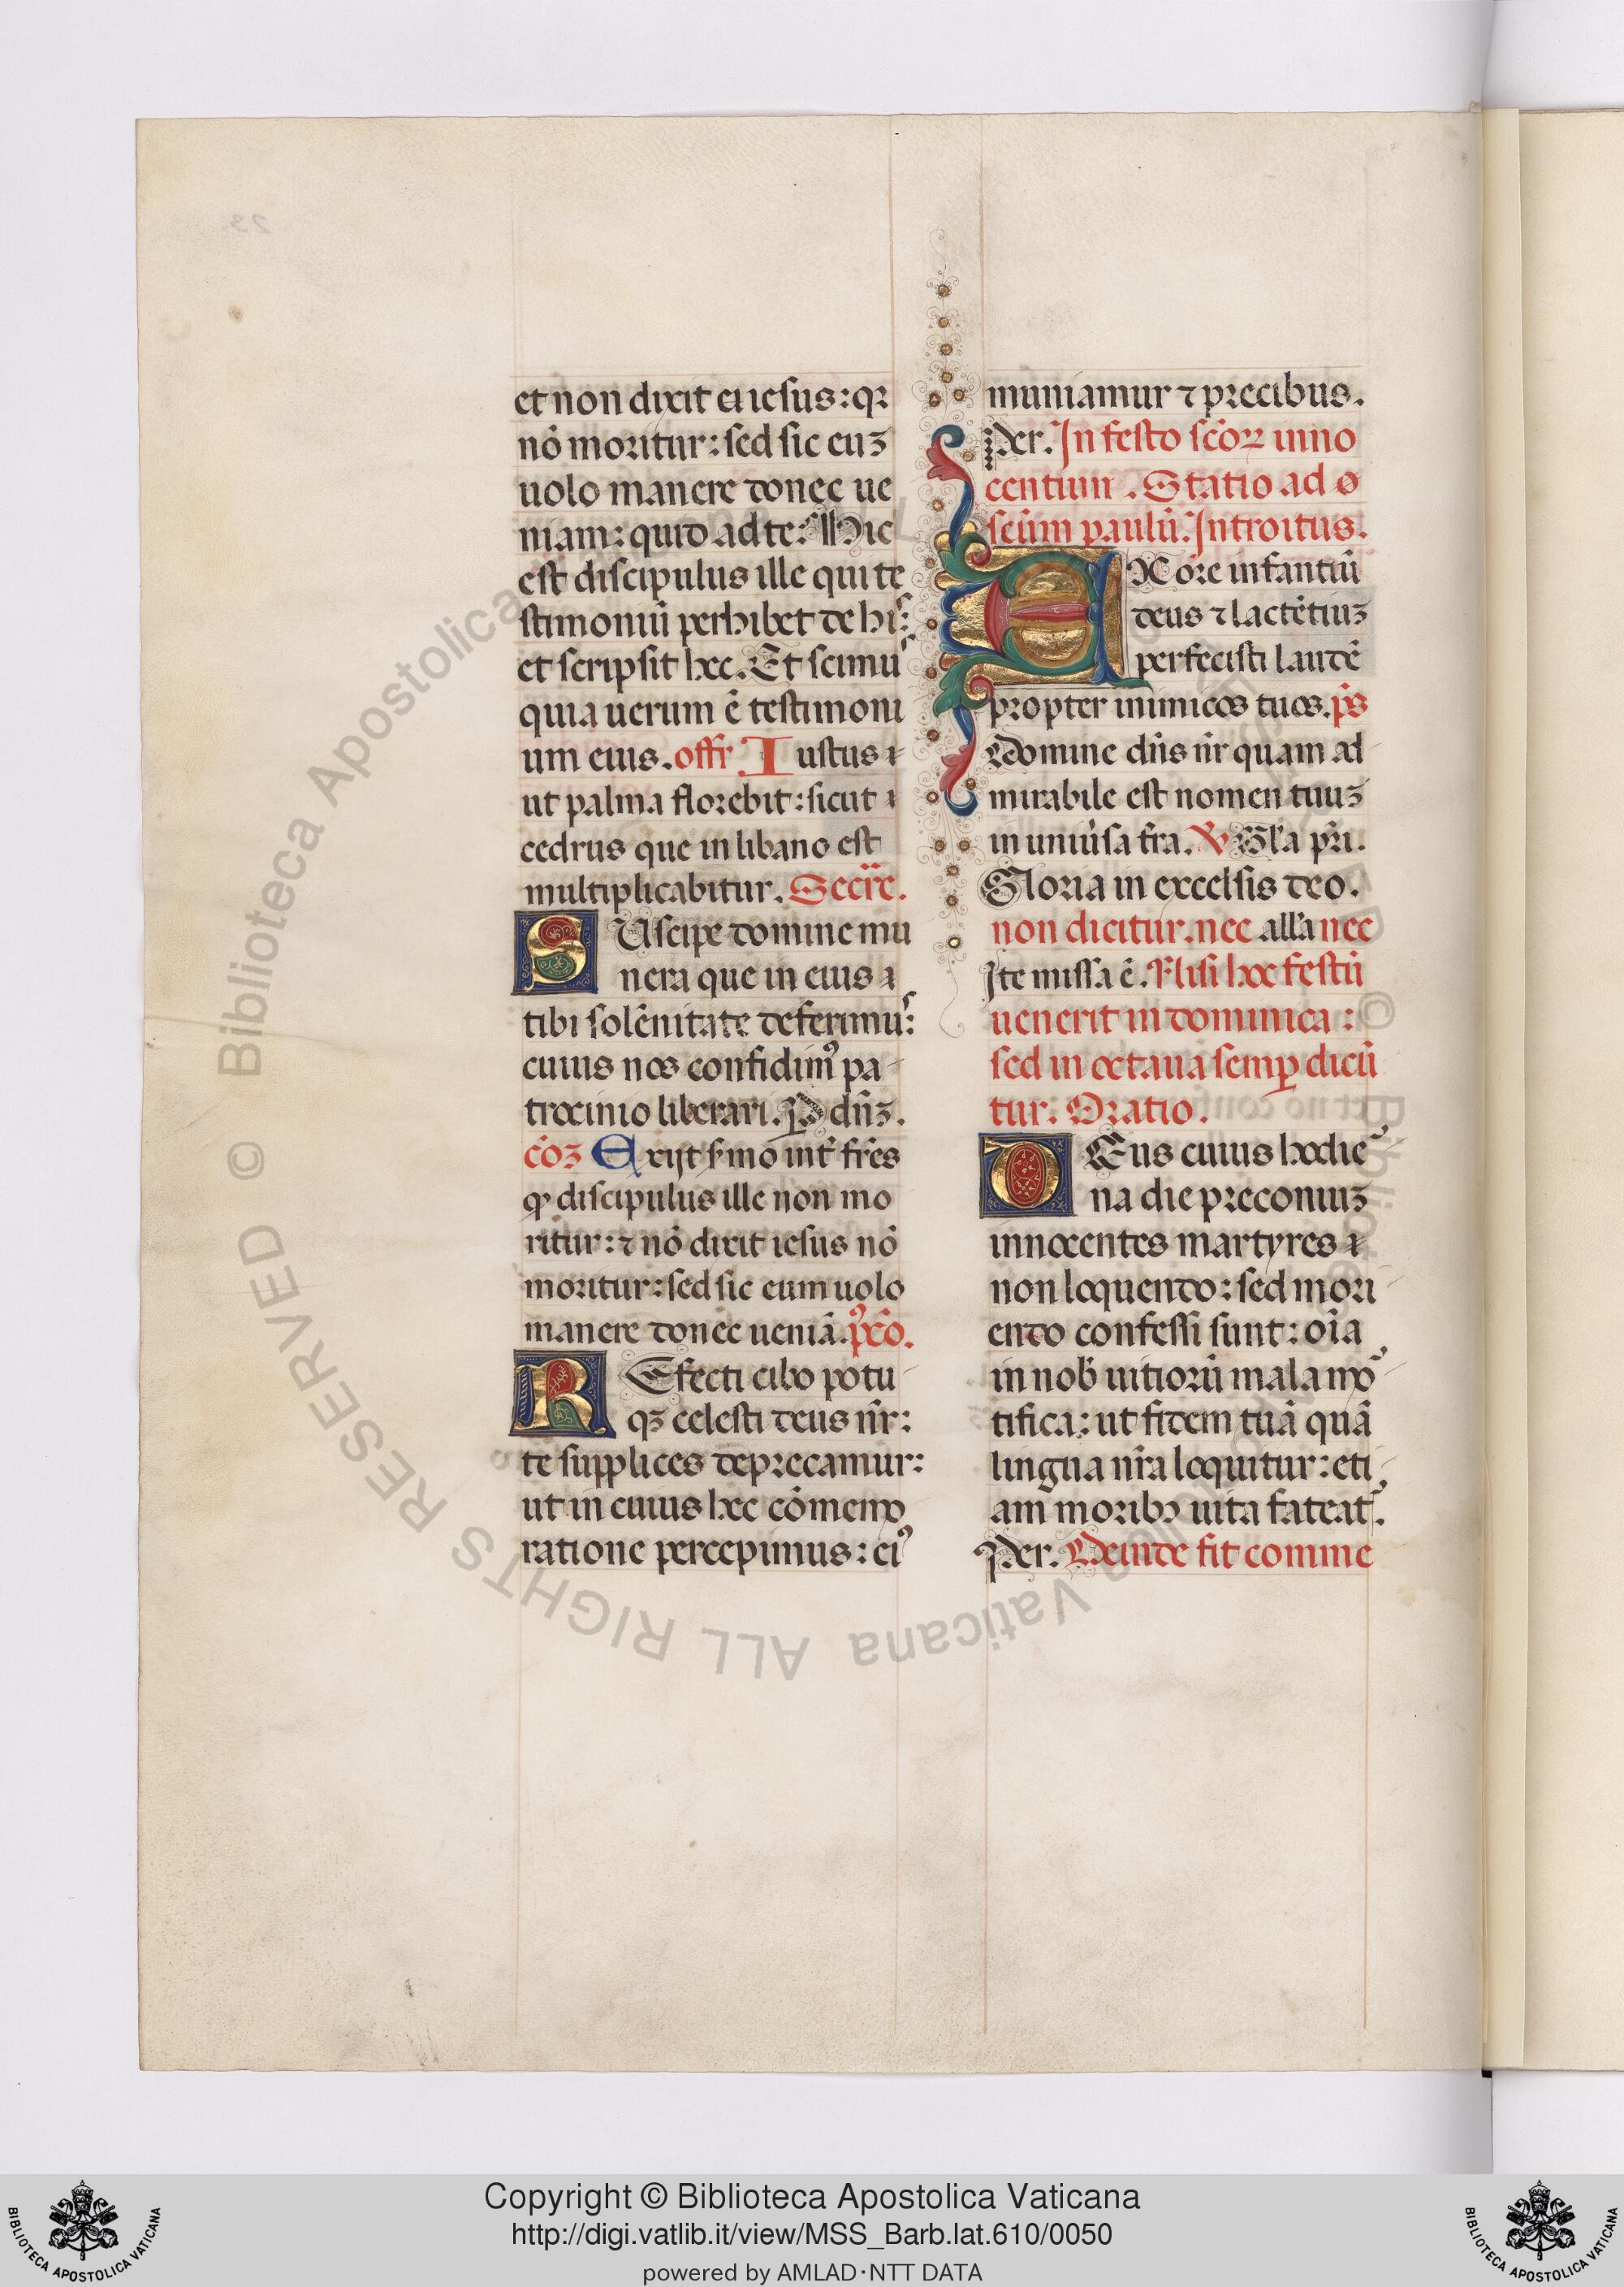 et non dixit ei iesus: qꝛ
nō moritur: sed sic euꝫ
uolo manere donec ue
niam: quid ad te: Hic
est discipulus ille qui te
stimoniū perhibet de hiˢ:
et scripsit hec. Et scimuˢ
quia uerum ē testimoni
um eius. offr̄ Iustus
ut palma florebit: sicut
cedrus que in libano est
multiplicabitur. Secr̄e.
SUscipe domine mu
nera que in eius
tibi solēnitate deferimuˢ:
cuius nos confidimꝰ pa
trocinio liberari. P dn̄ꝫ.
cōꝫ Exijt s̄mo int̄ fr̄es
ꝙ discipulus ille non mo
ritur: ⁊ nō dixit iesus nō
moritur: sed sic eum uolo
manere donec ueniā. pꝰcō.
REfecti cibo potu
qꝫ celesti deus nr̄:
te supplices deprecamur:
ut in cuius hec cōmemo
ratione percepimus: eiꝰ
muniamur ⁊ precibus.
Per. In festo sc̄oꝝ inno
centium. Statio ad
sc̄um paulū. Introitus.
EX ore infantiū
deus ⁊ lactētiuꝫ
perfecisti laudē
propter inimicos tuos. p̄s
Domine dn̄s nr̄ quam ad
mirabile est nomen tuuꝫ
in uniu̓sa tr̄a. ℣ Gl̄a pr̄i.
Gloria in excelsis deo.
non dicitur. nec all̄a nec
Ite missa ē. Nisi hoc festū
uenerit in dominica:
sed in octaua semꝑ dicū
tur. Oratio.
DEus cuius hodieˢ
na die preconiuꝫ
innocentes martyres
non loquendo: sed mori
endo confessi sunt: oīa
in nob̄ uitiorū mala moˢ
tifica: ut fidem tuā quā
lingua nr̄a loquitur: eti
am moribꝰ uita fateatˢ.
Per. Deinde fit comme
Copyright © Biblioteca Apostolica Vaticana
http://digi.vatlib.it/view/MSS_Barb.lat.610/0050
powered by AMLAD·NTT DATA
BIBLIOTECA APOSTOLICA VATICANA
BIBLIOTECA APOSTOLICA VATICANA
© Biblioteca Apostolica Vaticana ALL RIGHTS RESERVED